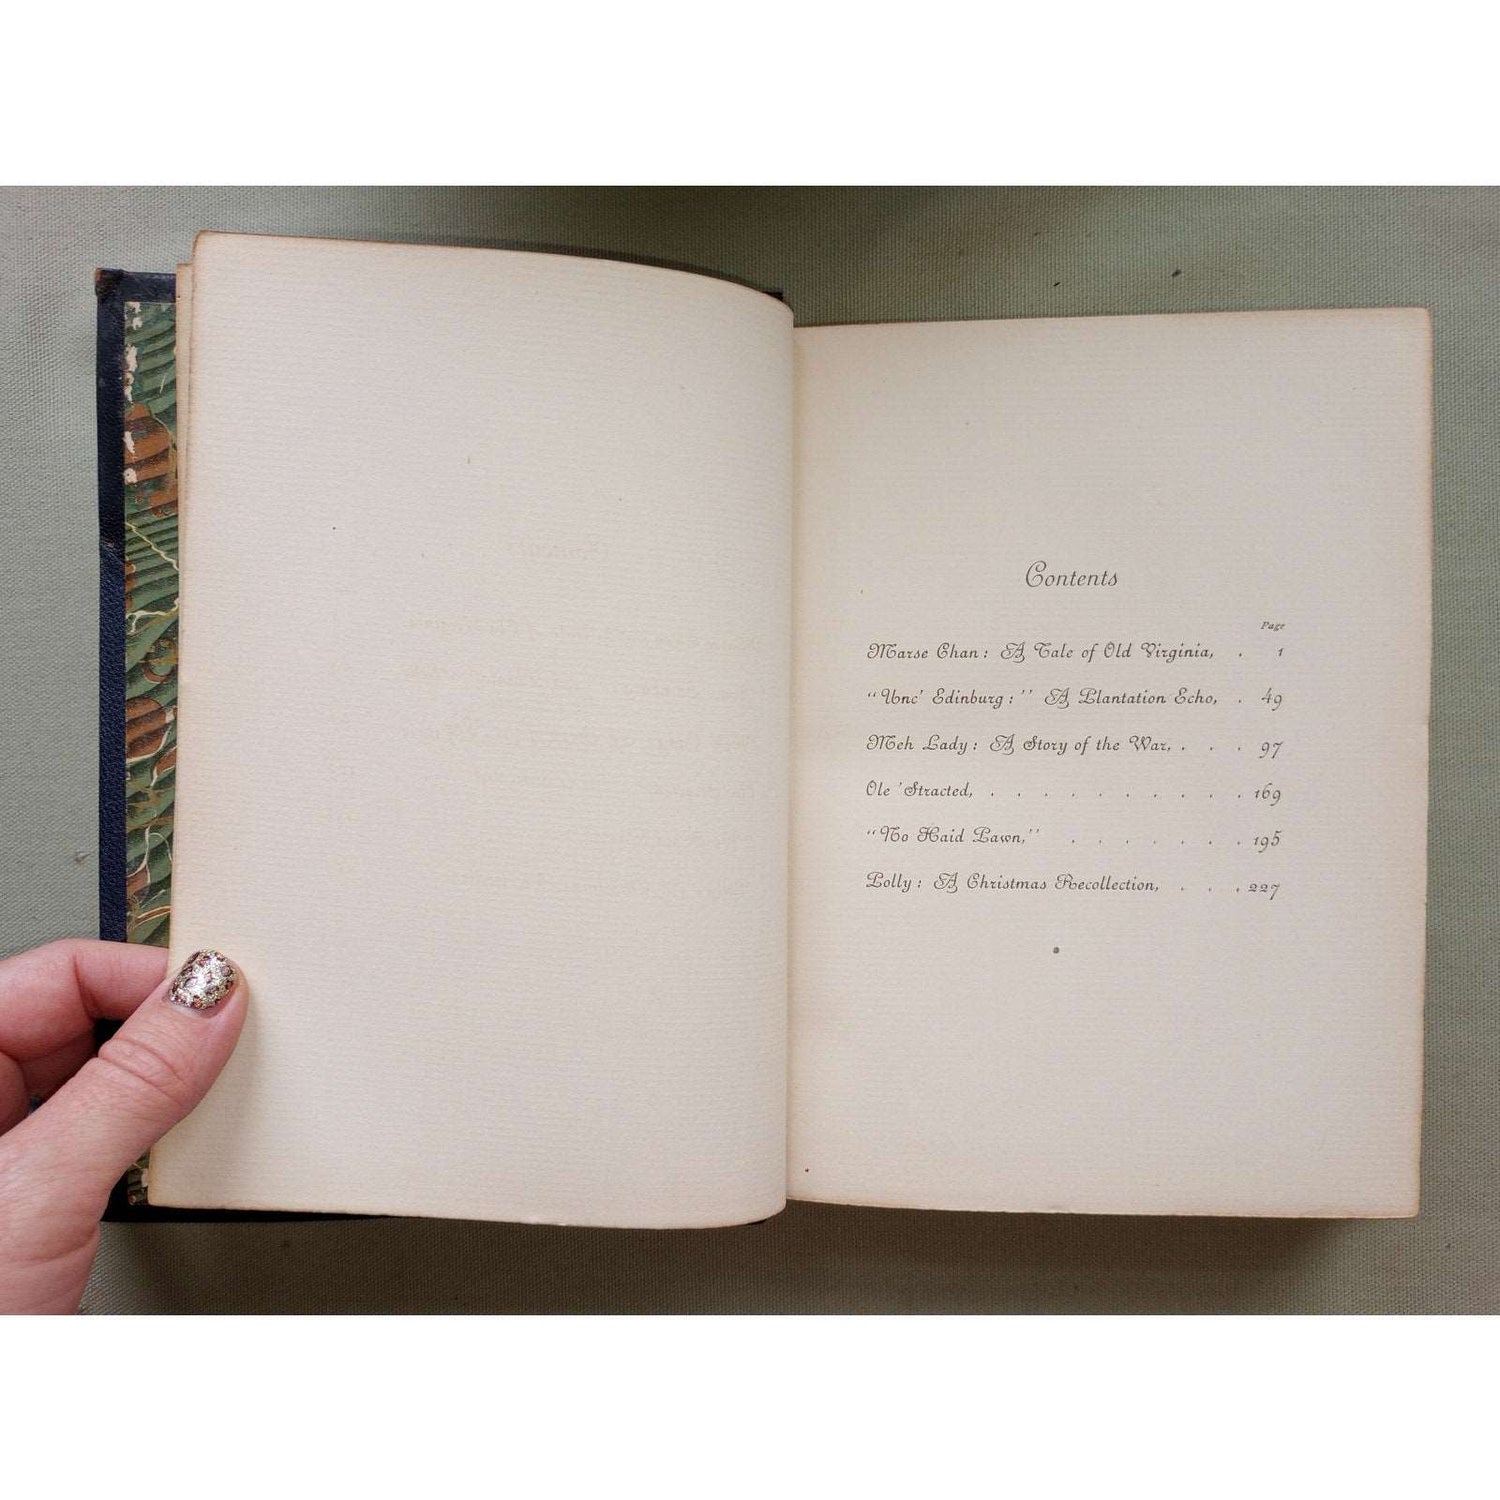 Contents
Page
Marse Chan: A Tale of Old Virginia, . 1
"Unc' Edinburg:" A Plantation Echo, . 49
Meh Lady: A Story of the War, . . . 97
Ole 'Stracted, . . . . . . . . . . 169
"No Haid Pawn," . . . . . . . 195
Polly: A Christmas Recollection, . . . 227